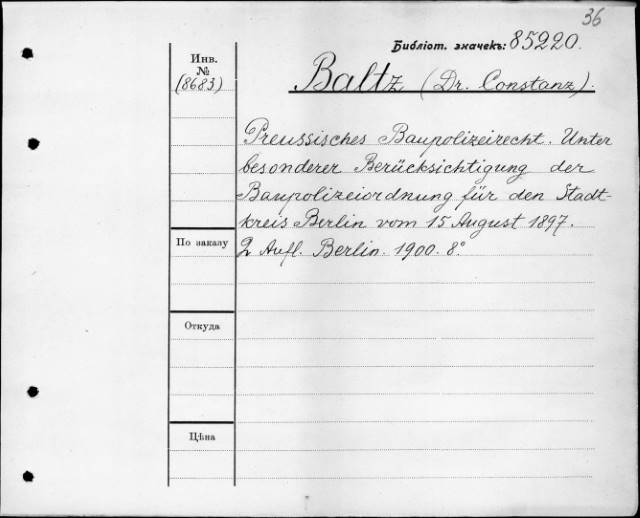 36
Библіот. значекъ: 85220.
Инв.
№
(8683)
Baltz (Dr. Constanz).
Preussisches Baupolizeirecht. Unter
besonderer Berücksichtigung der
Baupolizeiordnung für den Stadt-
kreis Berlin vom 15 August 1897.
2 Aufl. Berlin. 1900. 8°
По заказу
Откуда
Цѣна